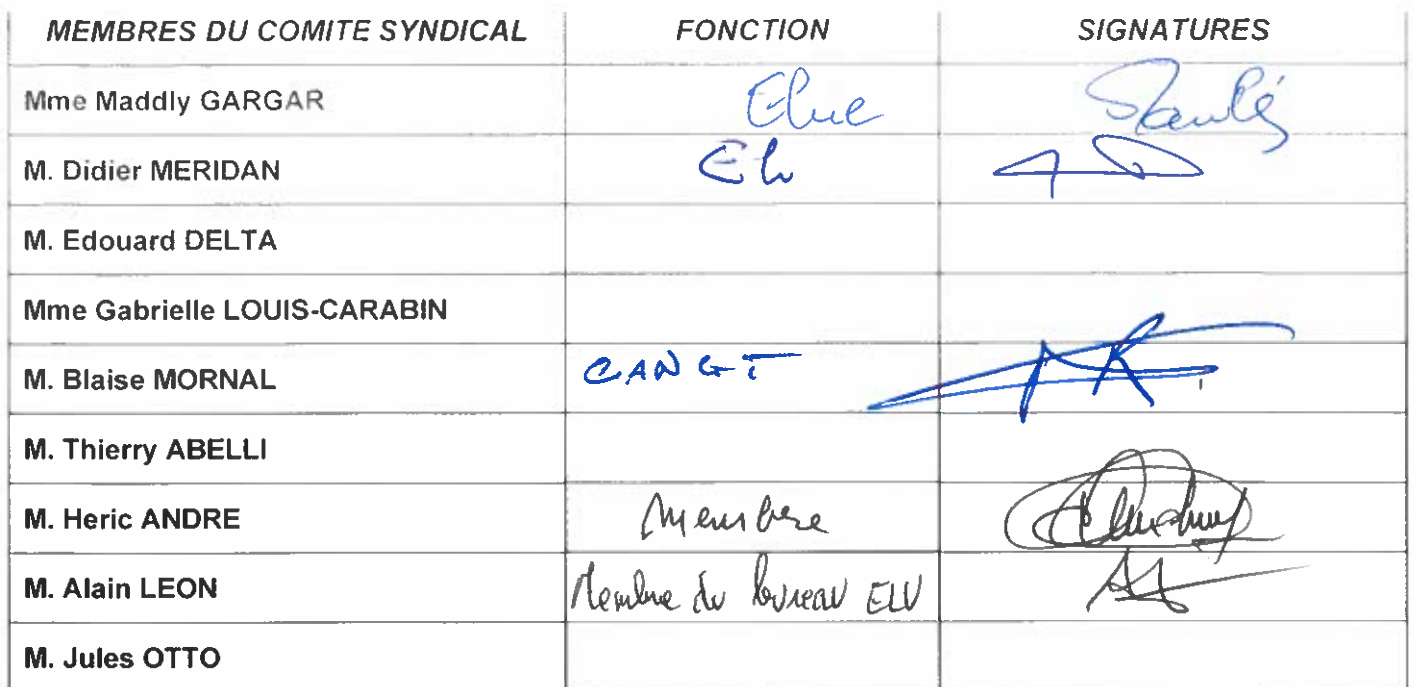 MEMBRES DU COMITE SYNDICAL FONCTION SIGNATURES
Mme Maddly GARGAR Elue
M. Didier MERIDAN Elu
M. Edouard DELTA
Mme Gabrielle LOUIS-CARABIN
M. Blaise MORNAL CANGT
M. Thierry ABELLI
M. Heric ANDRE Membre
M. Alain LEON Membre du bureau ELU
M. Jules OTTO